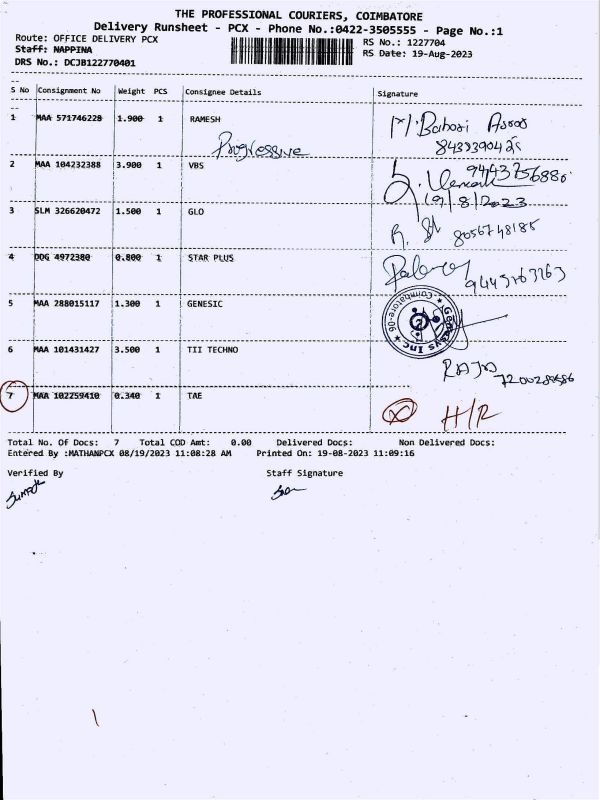 THE PROFESSIONAL COURIERS, COIMBATORE
Delivery Runsheet - PCX - Phone No.:0422-3505555 - Page No.:1
Route: OFFICE DELIVERY PCX RS No.: 1227704
Staff: NAPPINA RS Date: 19-Aug-2023
DRS No.: DCJB122770401
S No Consignment No Weight PCS Consignee Details Signature
1 MAA 571746228 1.900 1 RAMESH
Progressive
2 MAA 104232388 3.900 1 VBS 9443756886
19/8/2023
3 SLM 326620472 1.500 1 GLO 8056748185
4 DDG 4972380 0.800 1 STAR PLUS
5 MAA 288015117 1.300 1 GENESIC
Genesys Inc
Coimbatore-06
6 MAA 101431427 3.500 1 TII TECHNO
RAJA
7 MAA 102259410 0.340 1 TAE H/R
Total No. Of Docs: 7 Total COD Amt: 0.00 Delivered Docs: Non Delivered Docs:
Entered By :MATHANPCX 08/19/2023 11:08:28 AM Printed On: 19-08-2023 11:09:16
Verified By Staff Signature